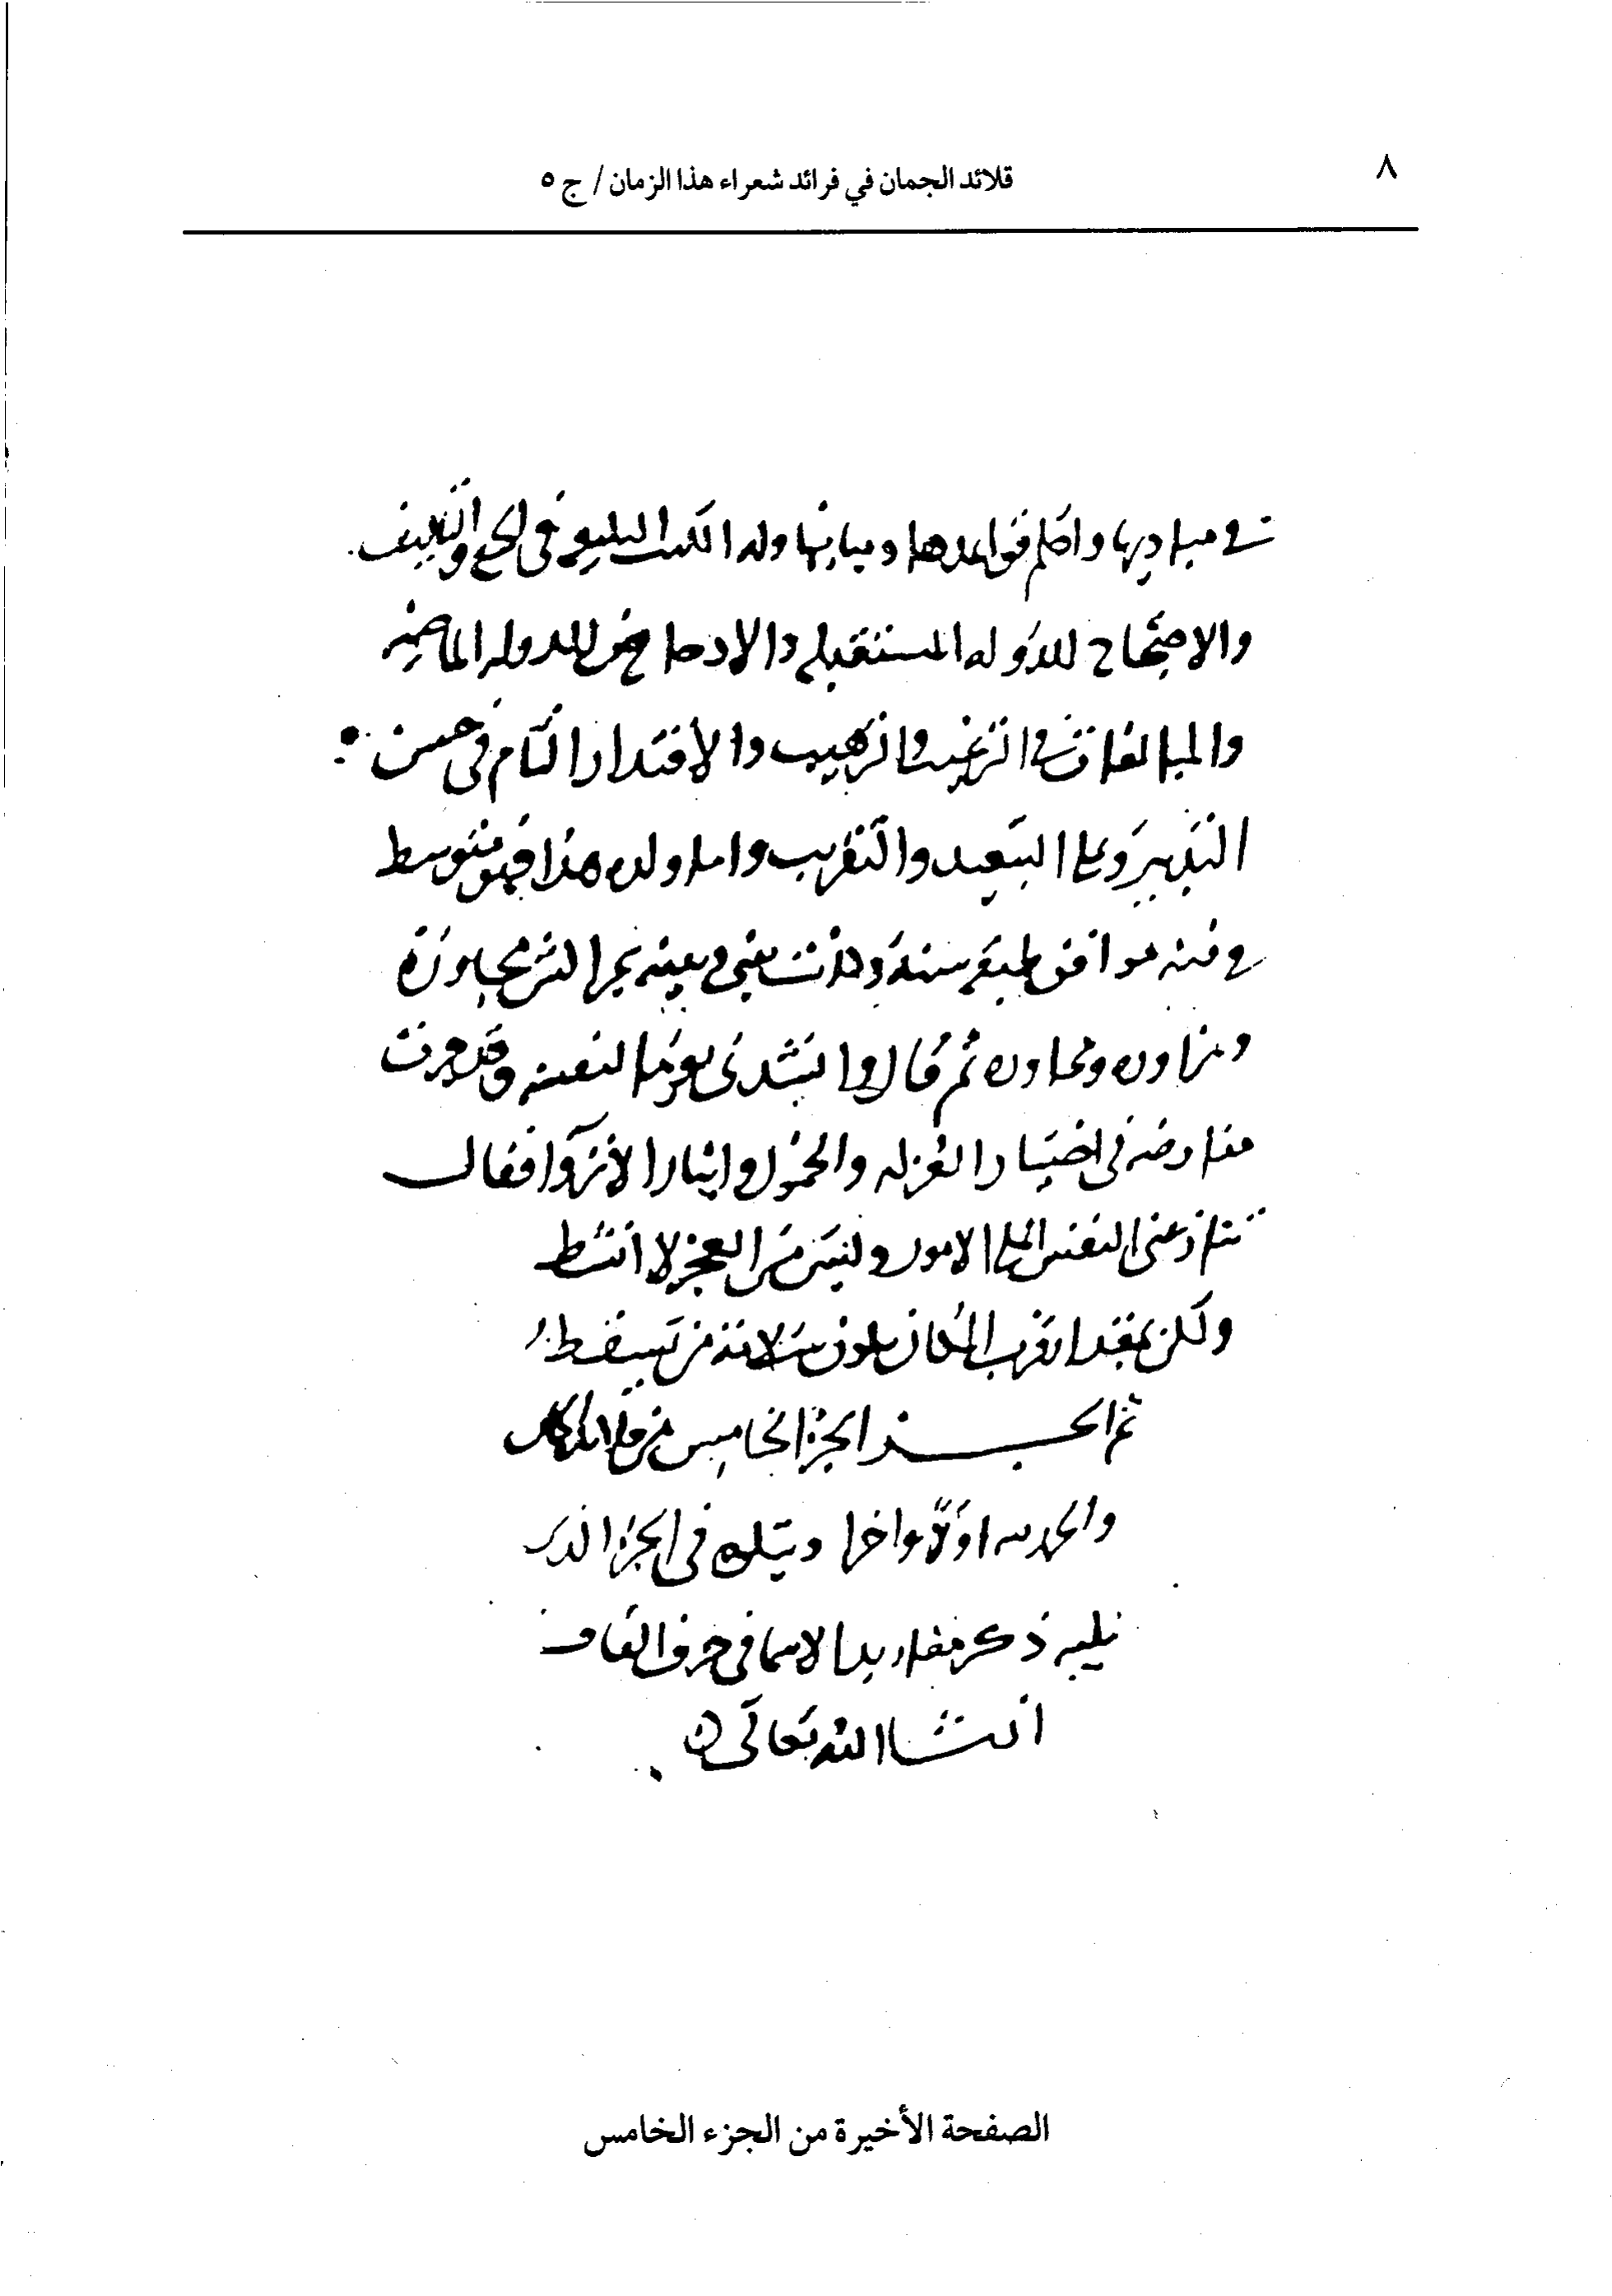 ٨
قلائد الجمان في فرائد شعراء هذا الزمان / ج ٥
في مباديها واحكم قواعدها ومبانيها وله الكتب البليغه في الحج والتليف
والاحتجاج للدوله المستقبله والادحاض للدوله الماضيه
والمبالغات في الترغيب والترهيب والاقتدار التام في حسن
التدبير وعلى التبعيد والتقريب واما ولده هذا فهو متوسط
في فنه موافق طبقه سنه وكانت بيني وبينه بحر الشرع مجاوزة
ومزاوره ومحاوره ثم قال وانشدني بعزيما لنفسه وقد جرت
مفاوضه في اختيار العزله والخمول وايثار الانزوا فقال
تنازعني النفس اعلى الامور وليس من العجز لا انشط
ولكن بمقدار قرب المكان تكون سلامة من يسقط
تم الجزء الخامس من قلائد الجمان
والحمد لله اولا واخرا ويتلوه في الجزء الذي
يليه ذكر مفاريد الاسما في حرف القاف
ان شا الله تعالى
الصفحة الأخيرة من الجزء الخامس